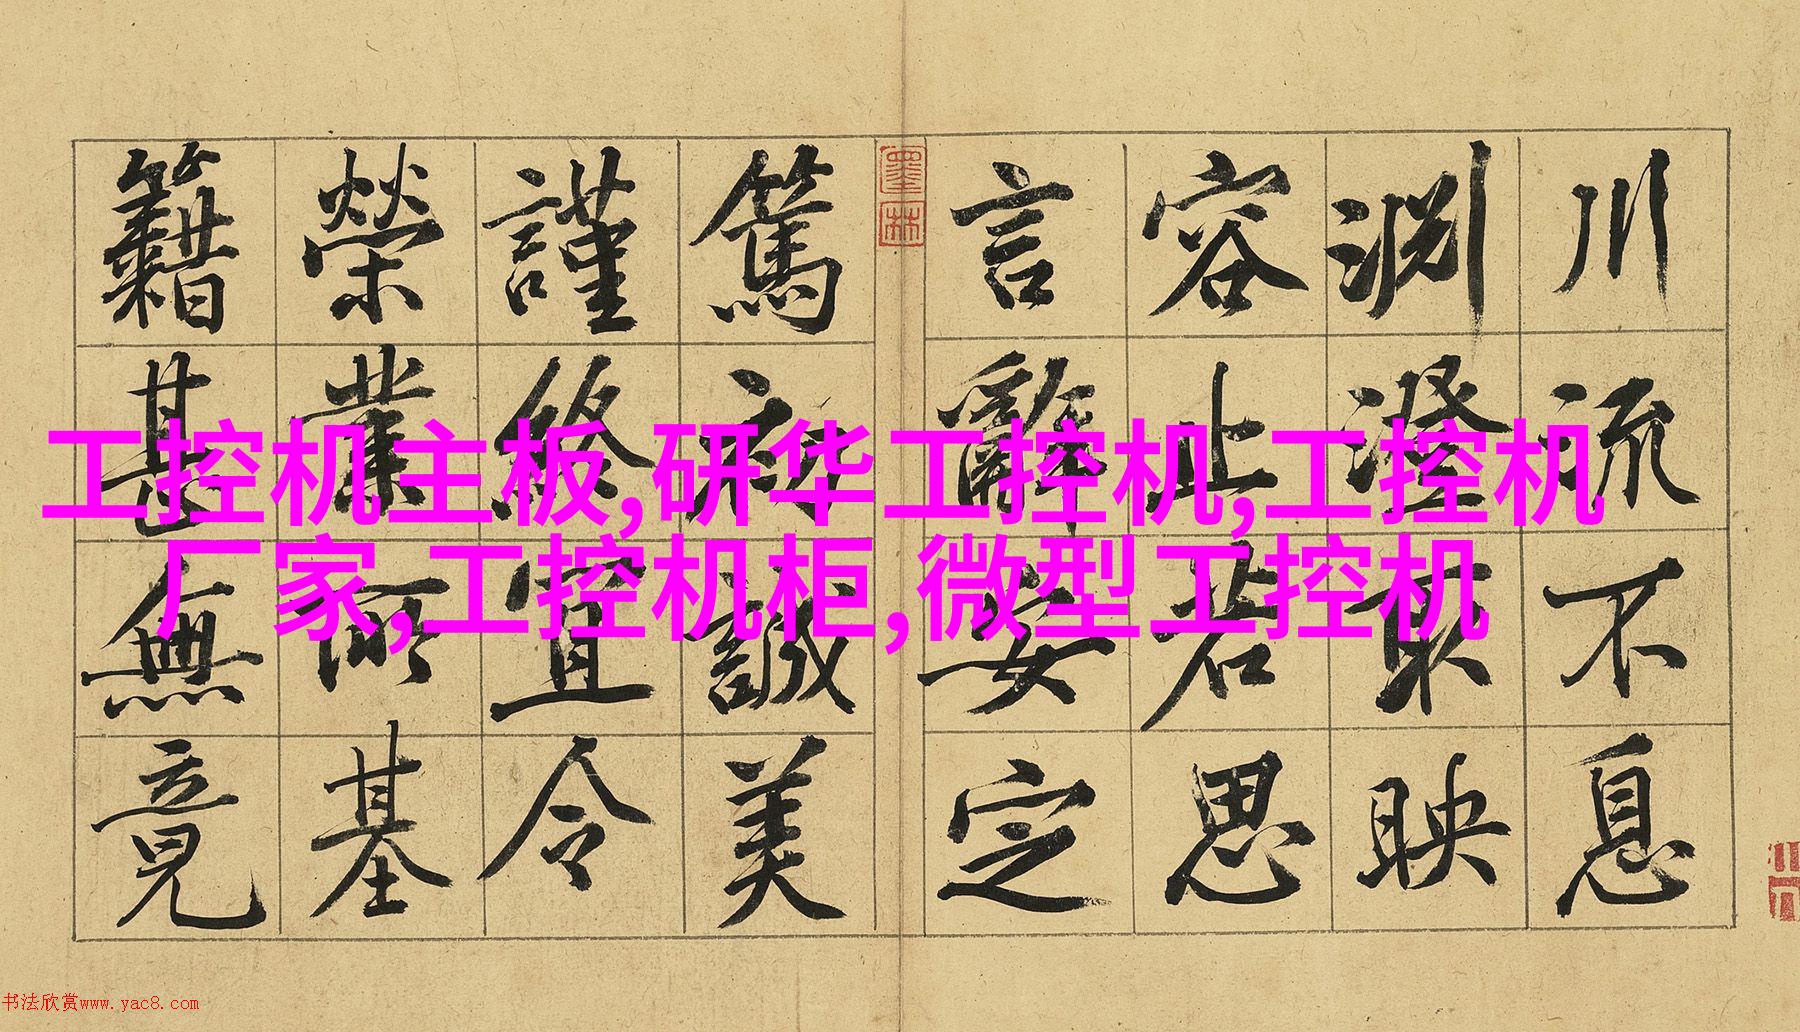 川流不息
渊澄取映
容止若思
言辭安定
墨林
篤初誠美
謹終宜令
榮業所基
籍甚無竟
工控机主板,研华工控机,工控机
厂家,工控机柜,微型工控机
书法欣赏www.yac8.com